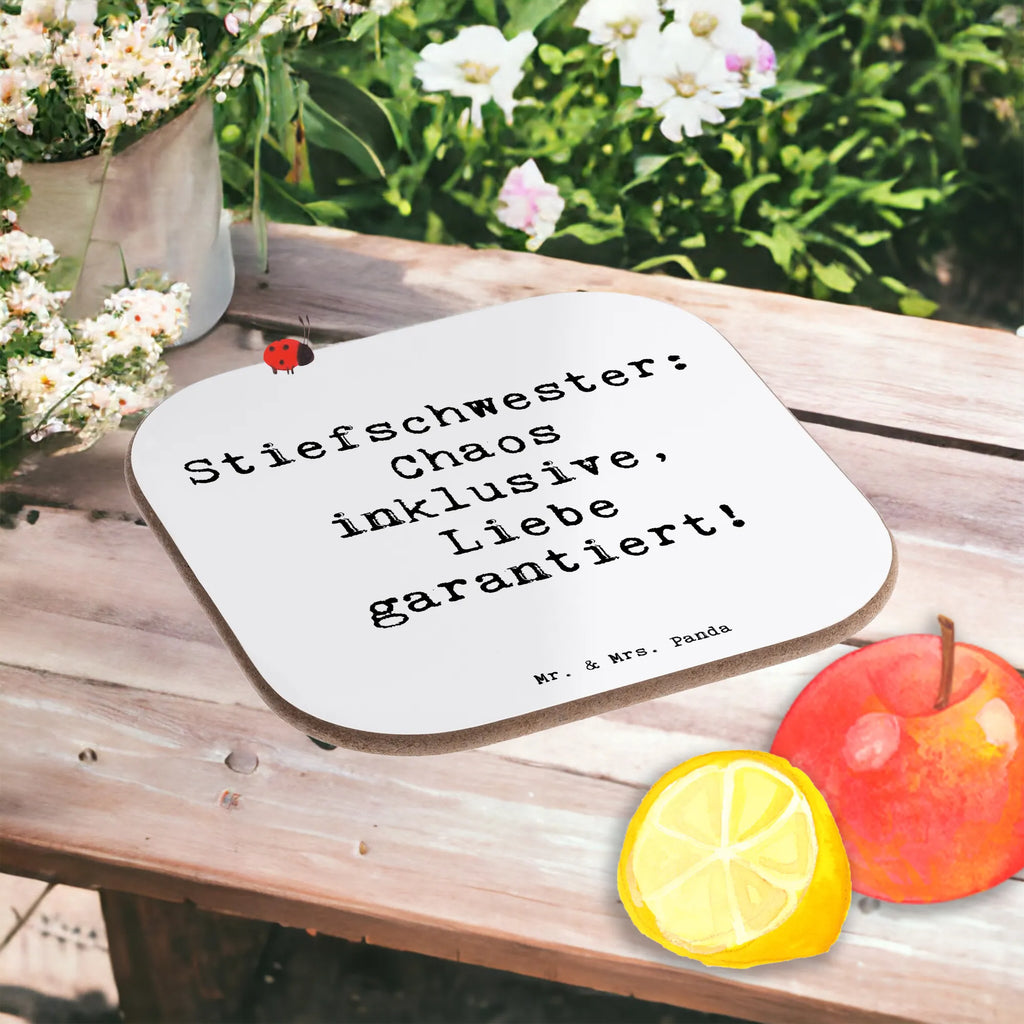 Stiefschwester:
Chaos
inklusive,
Liebe
garantiert!
Mr. & Mrs. Panda